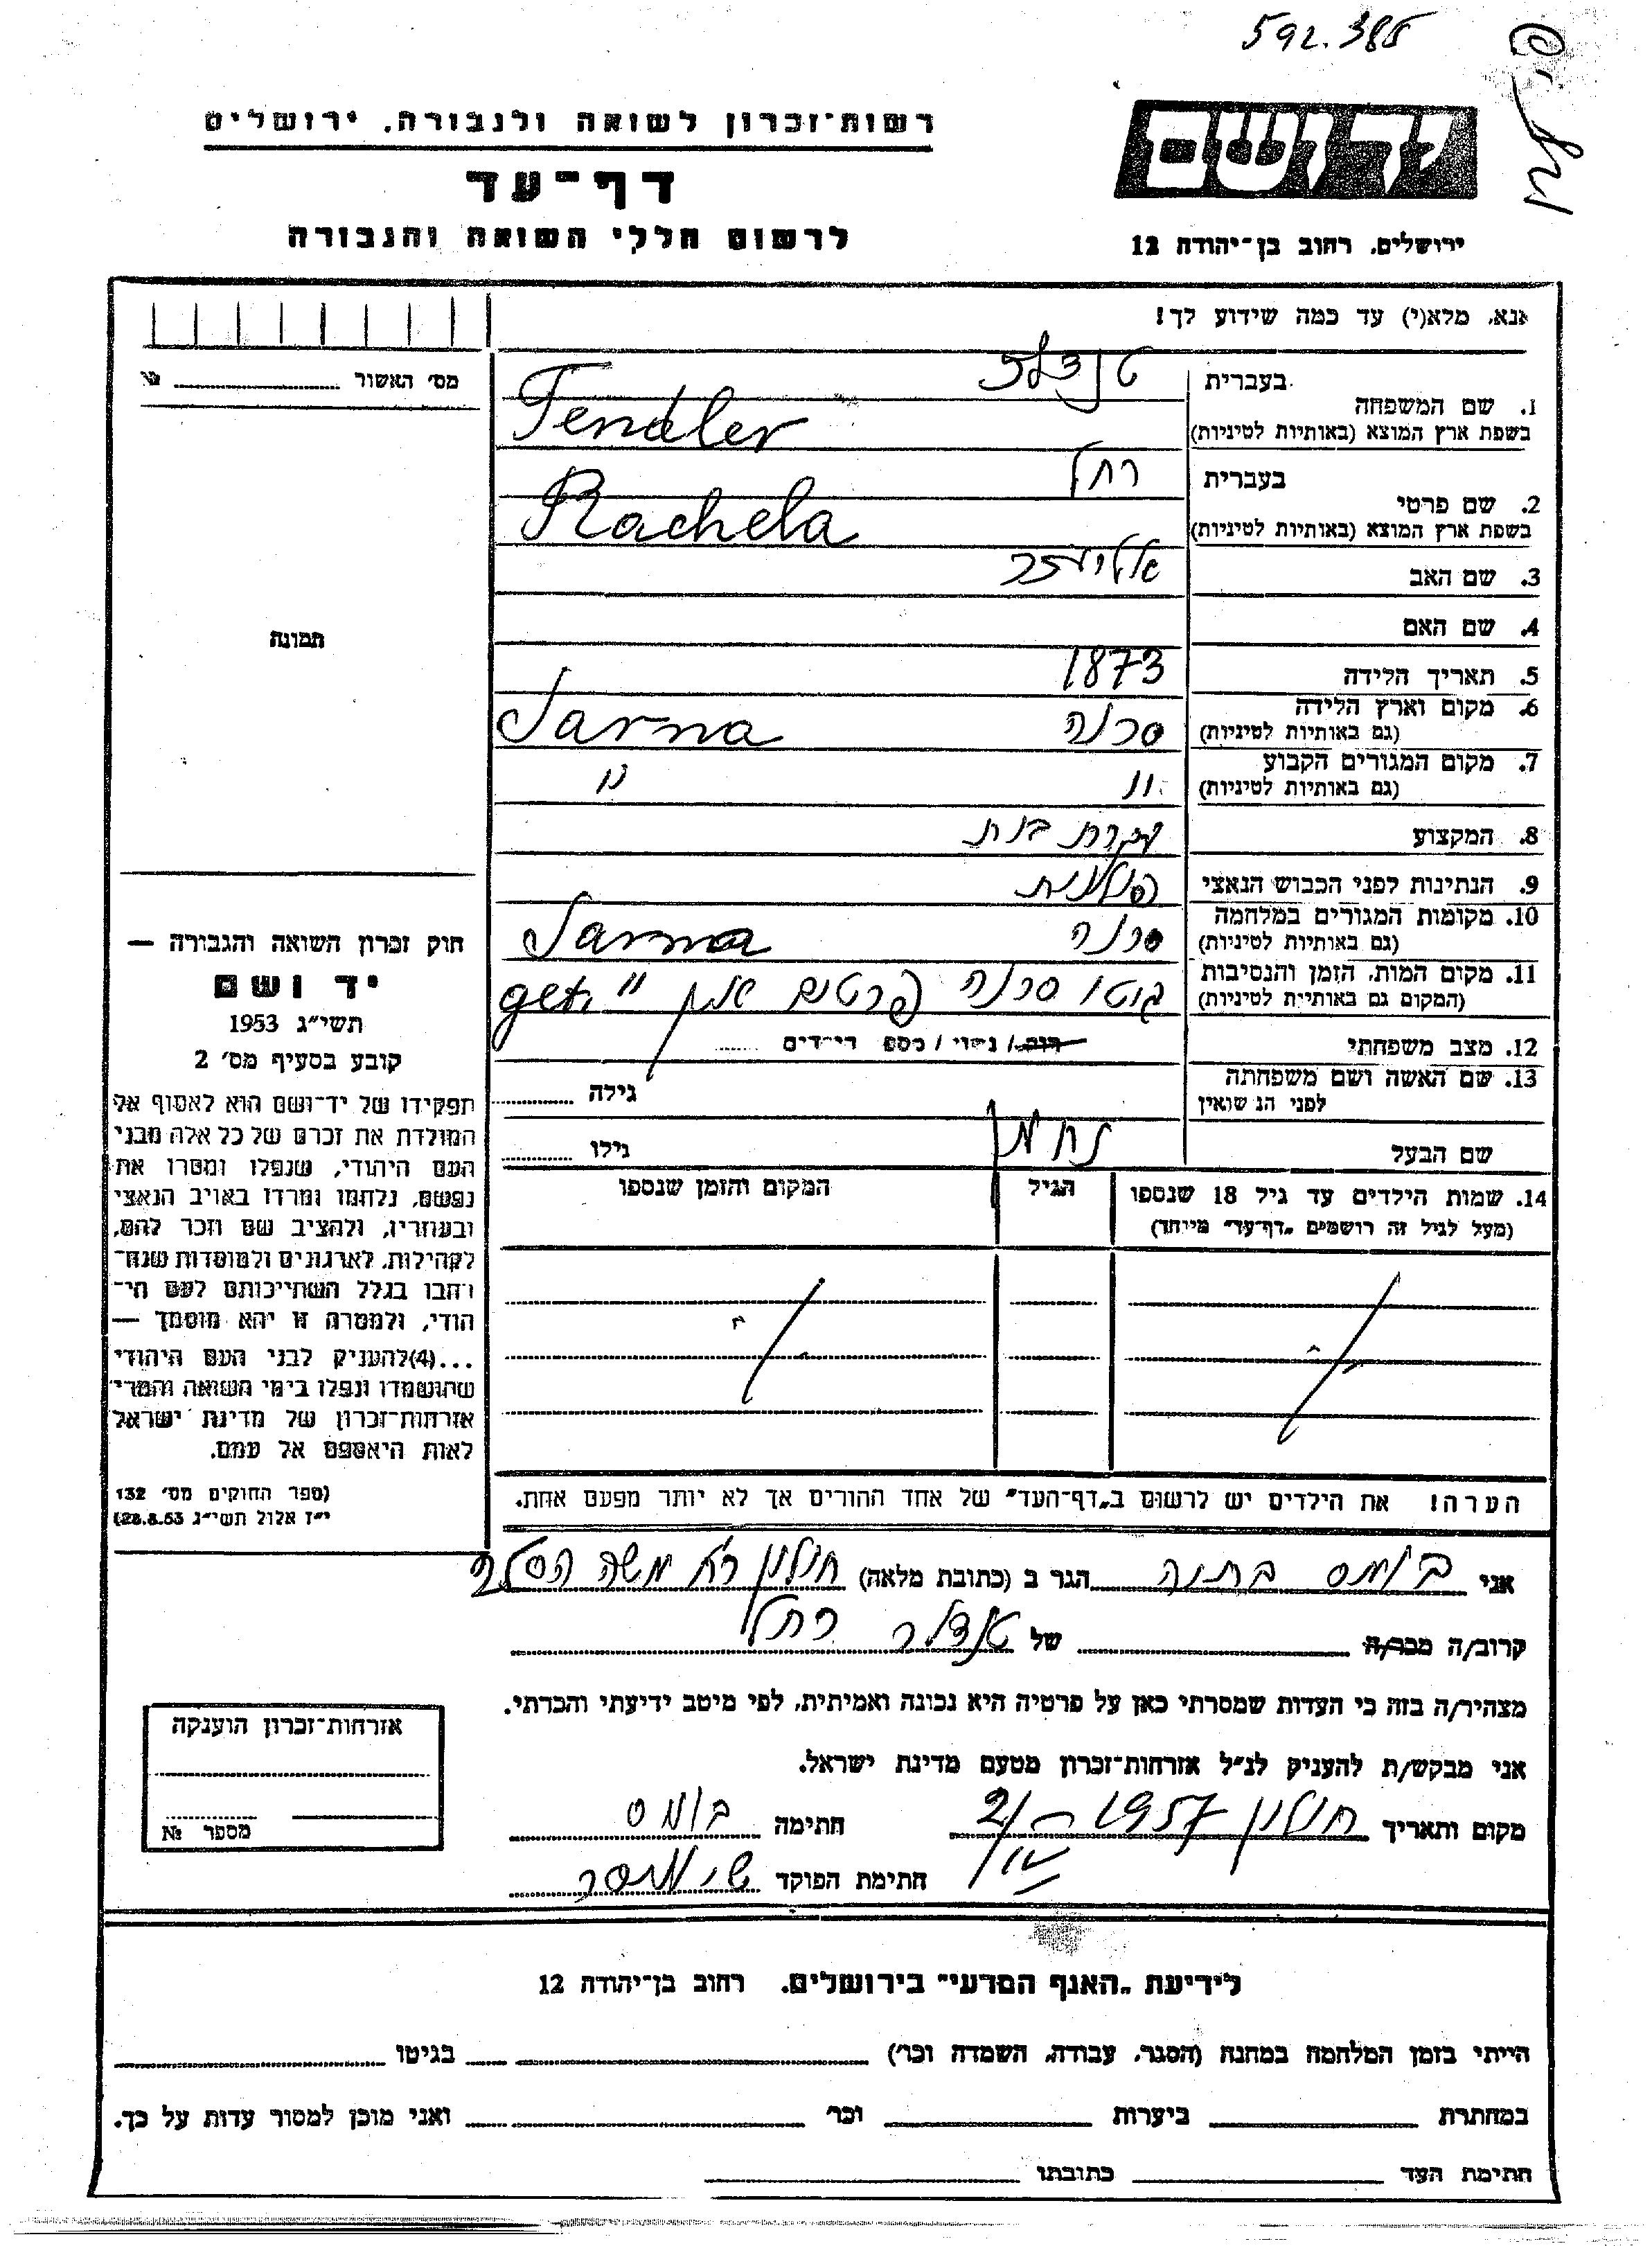 592.385
רשות־זכרון לשואה ולגבורה, ירושלים
דף־עד
לרשום חללי השואה והגבורה
יד ושם
ירושלים, רחוב בן־יהודה 12
אנא, מלא(י) עד כמה שידוע לך!
מס׳ האשור
1. שם המשפחה
בעברית
בשפת ארץ המוצא (באותיות לטיניות)
Tendler
2. שם פרטי
בעברית רחל
בשפת ארץ המוצא (באותיות לטיניות)
Rachela
3. שם האב אליעזר
4. שם האם
5. תאריך הלידה 1873
6. מקום וארץ הלידה
(גם באותיות לטיניות) סרנה Sarna
7. מקום המגורים הקבוע
(גם באותיות לטיניות) " "
8. המקצוע עקרת בית
9. הנתינות לפני הכבוש הנאצי פולנית
10. מקומות המגורים במלחמה
(גם באותיות לטיניות) סרנה Sarna
11. מקום המות, הזמן והנסיבות
(המקום גם באותיות לטיניות) גיטו סרנה פרטים אין "
12. מצב משפחתי רוק / נשוי / מספר הילדים
13. שם האשה ושם משפחתה
לפני הנשואין
גילה
שם הבעל נחמן גילו
14. שמות הילדים עד גיל 18 שנספו
(מעל לגיל זה רושמים „דף־עד" מיוחד)
הגיל
המקום והזמן שנספו
הערה! את הילדים יש לרשום ב„דף־העד" של אחד ההורים אך לא יותר מפעם אחת.
תמונה
חוק זכרון השואה והגבורה —
יד ושם
תשי״ג 1953
קובע בסעיף מס׳ 2
תפקידו של יד־ושם הוא לאסוף אל
המולדת את זכרם של כל אלה מבני
העם היהודי, שנפלו ומסרו את
נפשם, נלחמו ומרדו באויב הנאצי
ובעוזריו, ולהציב שם וזכר להם,
לקהילות, לארגונים ולמוסדות שנח־
רבו בגלל השתייכותם לעם הי־
הודי, ולמטרה זו יהא מוסמך —
...(4)להעניק לבני העם היהודי
שהושמדו ונפלו בימי השואה והמרי־
אזרחות־זכרון של מדינת ישראל
לאות היאספם אל עמם.
(ספר החוקים מס׳ 132
י״ז אלול תשי״ג 28.8.53)
אני בומס בתיה הגר ב (כתובת מלאה) חולון
קרוב/ה מכר/ה של טנדלר רחל
מצהיר/ה בזה כי העדות שמסרתי כאן על פרטיה היא נכונה ואמיתית, לפי מיטב ידיעתי והכרתי.
אני מבקש/ת להעניק לנ״ל אזרחות־זכרון מטעם מדינת ישראל.
מקום ותאריך חולון 1957 חתימה בומס
חתימת הפוקד
אזרחות־זכרון הוענקה
מספר №
לידיעת „האגף המדעי" בירושלים, רחוב בן־יהודה 12
הייתי בזמן המלחמה במחנה (הסגר, עבודה, השמדה וכו׳) בגיטו
במחתרת ביערות וכו׳ ואני מוכן למסור עדות על כך.
חתימת העד כתובתו